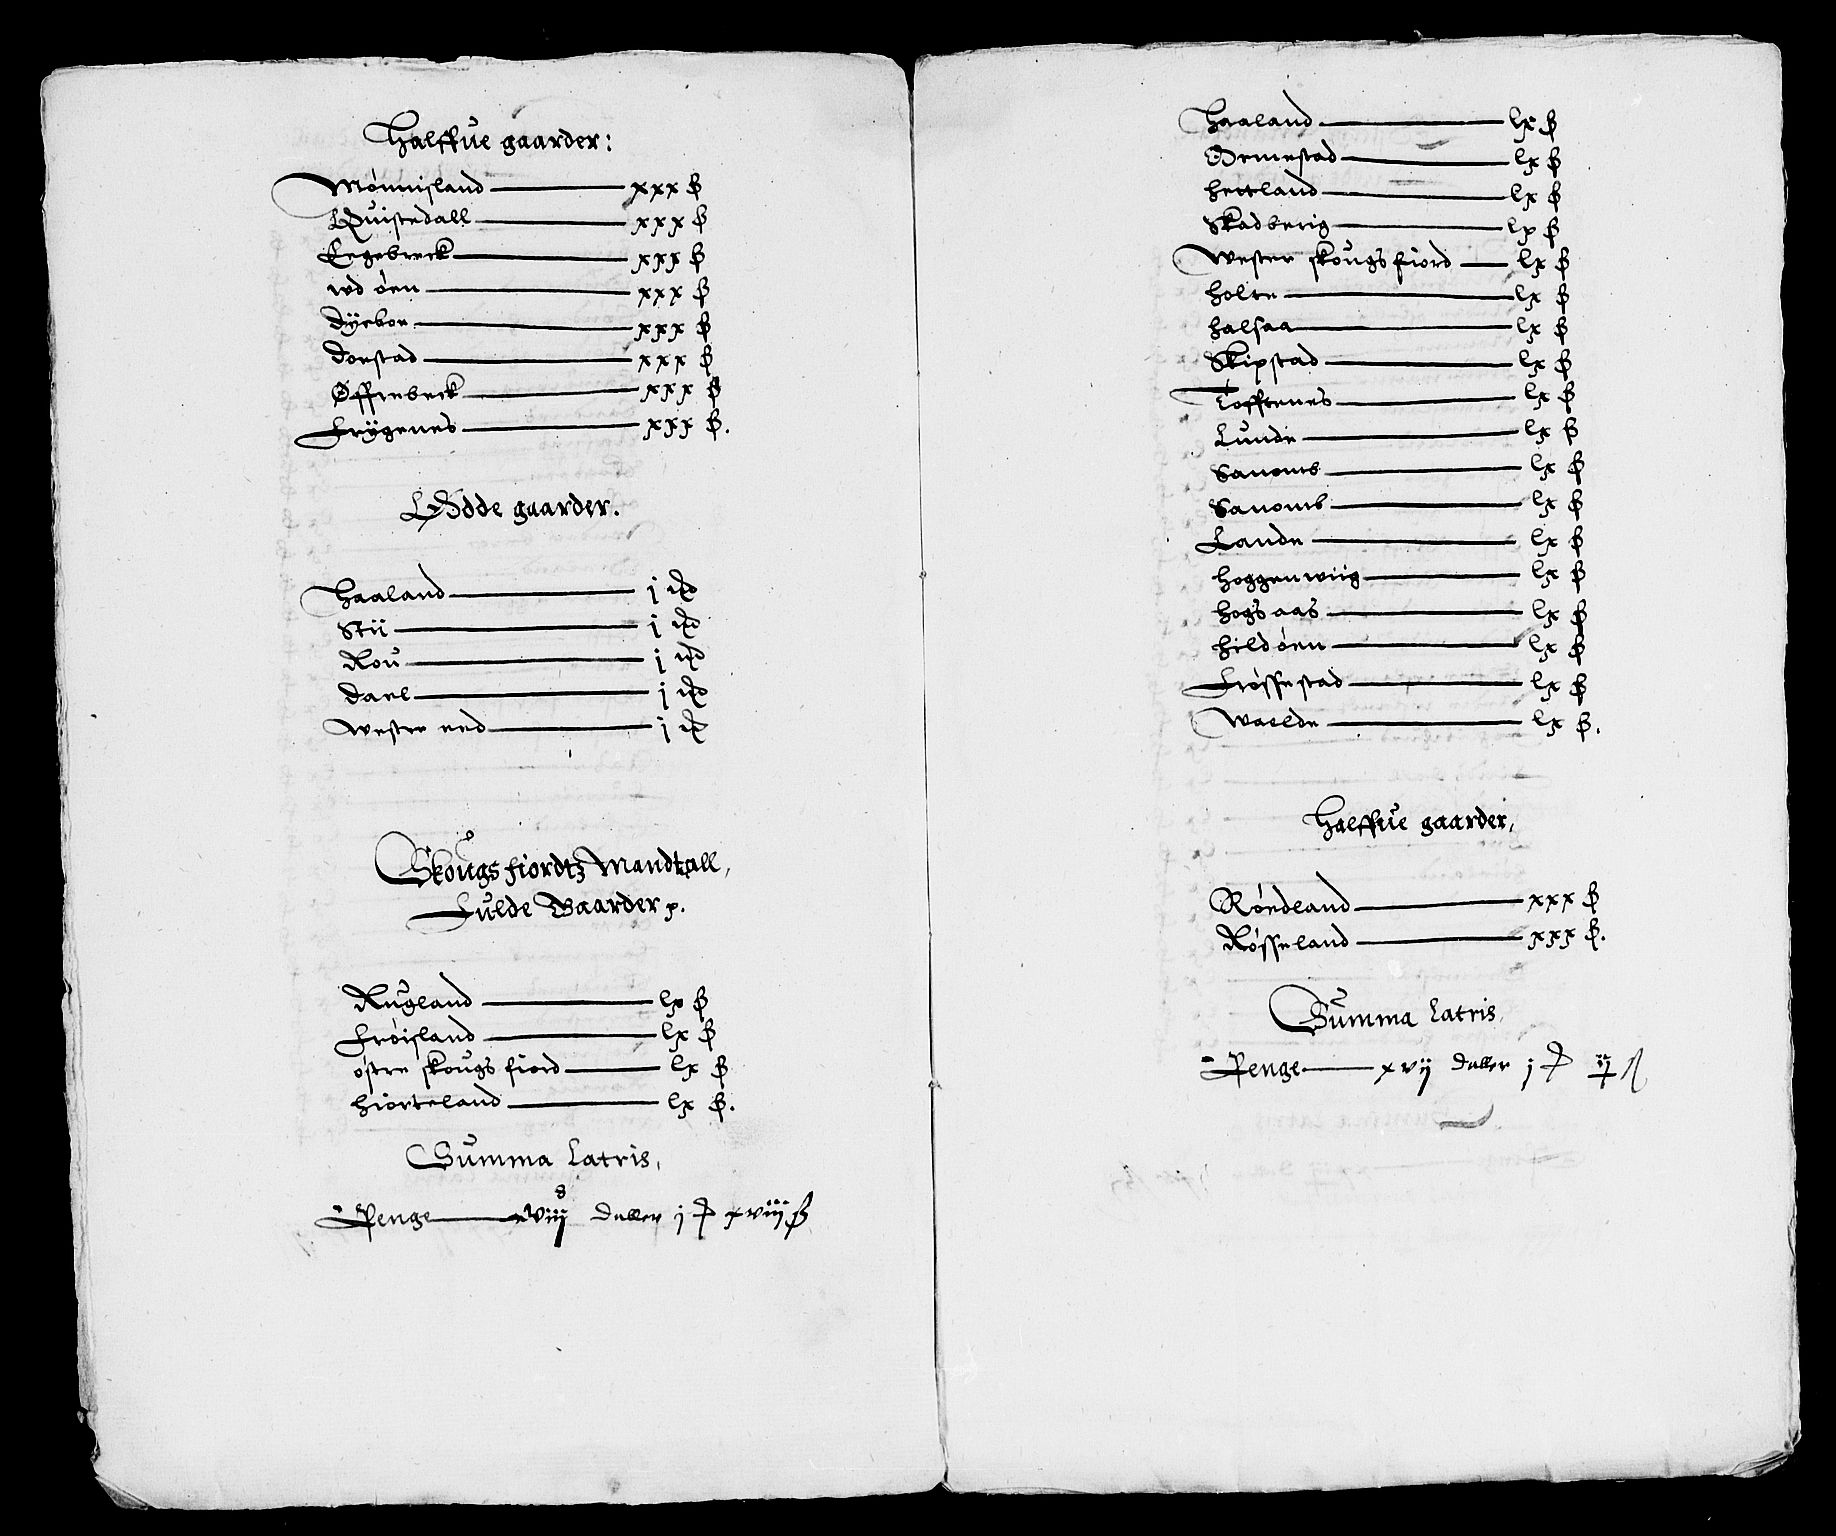 Halffue gaarder:
Mønnisland xxx ß
Quistedall xxx ß
Eegebreck xxx ß
wd øen xxx ß
Dyrbor xxx ß
Dorstad xxx ß
Øffrebeck xxx ß
Frygenes xxx ß.
Ødde gaarder.
Haaland j
Stii j
Rou j
Dael j
Wester j
Skougs fiordtz Mandtall,
Fulde Gaarder
Rugland lx ß
Frøisland lx ß
østre skougs fiord lx ß
Hiorteland lx ß.
Summa Latris,
Penge daller j xviij ß
Haaland lx ß
Ormestad lx ß
Hertland lx ß
Skadberig lx ß
Wester skougs fiord lx ß
Holte lx ß
Halsaa lx ß
Skipstad lx ß
Tofftenes lx ß
Lunde lx ß
Sanoms lx ß
Sanoms lx ß
Lande lx ß
Hoggenwiig lx ß
Hogs aas lx ß
Hildøen lx ß
Frøssestad lx ß
Waelde lx ß.
Halffue gaarder,
Røedland xxx ß
Røsseland xxx ß.
Summa Latris,
Penge xvij daller j